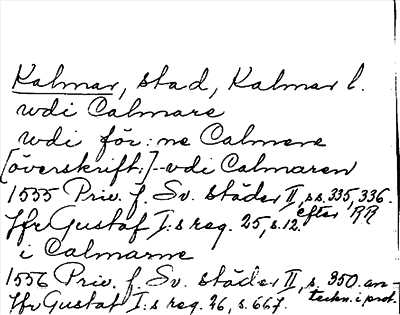 Kalmar, stad, Kalmar l.
wdi Calmare
wdi för:ne Calmene
[överskrift:] - vdi Calmaren
1555 Priv. f. Sv. städer II, ss. 335, 336.
Jfr Gustaf I:s reg. 25, s. 12. efter RR
i Calmarne
1556 Priv. f. Sv. städer II, s. 350. an-
Jfr Gustaf I:s reg. 26, s. 667. teckn. i prot.